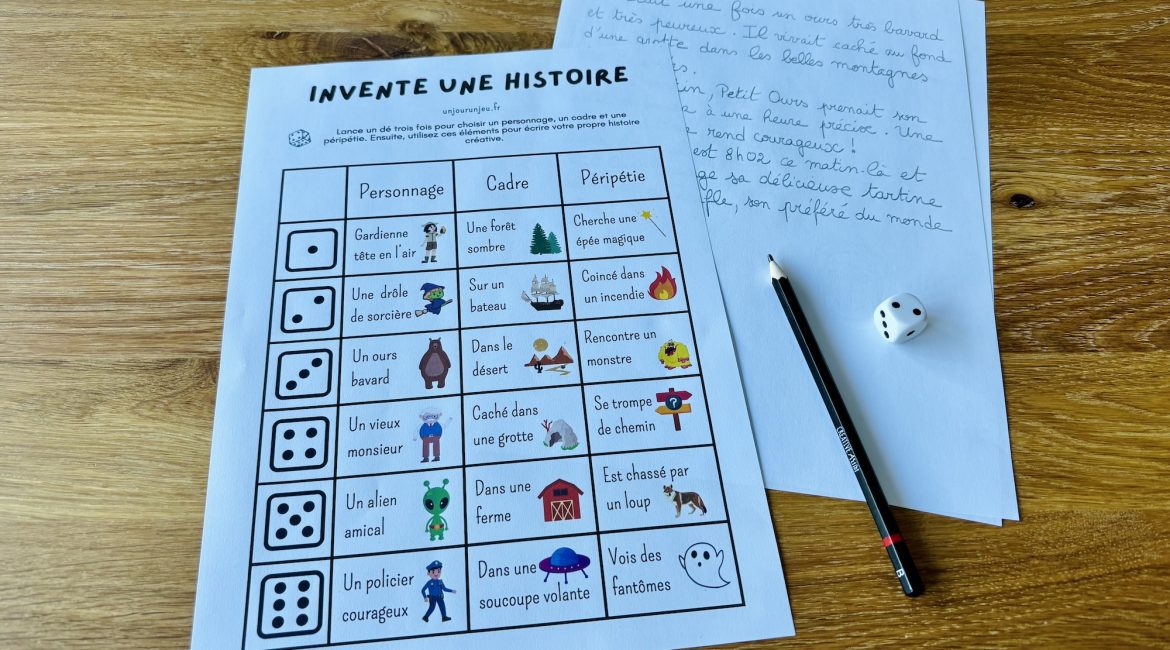 INVENTE UNE HISTOIRE
unjourunjeu.fr
Lance un dé trois fois pour choisir un personnage, un cadre et une
péripétie. Ensuite, utilisez ces éléments pour écrire votre propre histoire
créative.
Personnage Cadre Péripétie
Gardienne
tête en l'air
Une forêt
sombre
Cherche une
épée magique
Une drôle
de sorcière
Sur un
bateau
Coincé dans
un incendie
Un ours
bavard
Dans le
désert
Rencontre un
monstre
Un vieux
monsieur
Caché dans
une grotte
Se trompe
de chemin
?
Un alien
amical
Dans une
ferme
Est chassé par
un loup
Un policier
courageux
Dans une
soucoupe volante
Vois des
fantômes
une fois un ours très bavard
et très peureux. Il vivait caché au fond
d'une grotte dans les belles montagnes
Petit Ours prenait son
à une heure précise. Une
rend courageux !
est 8h02 ce matin-là et
sa délicieuse tartine
son préféré du monde
CREATIVE